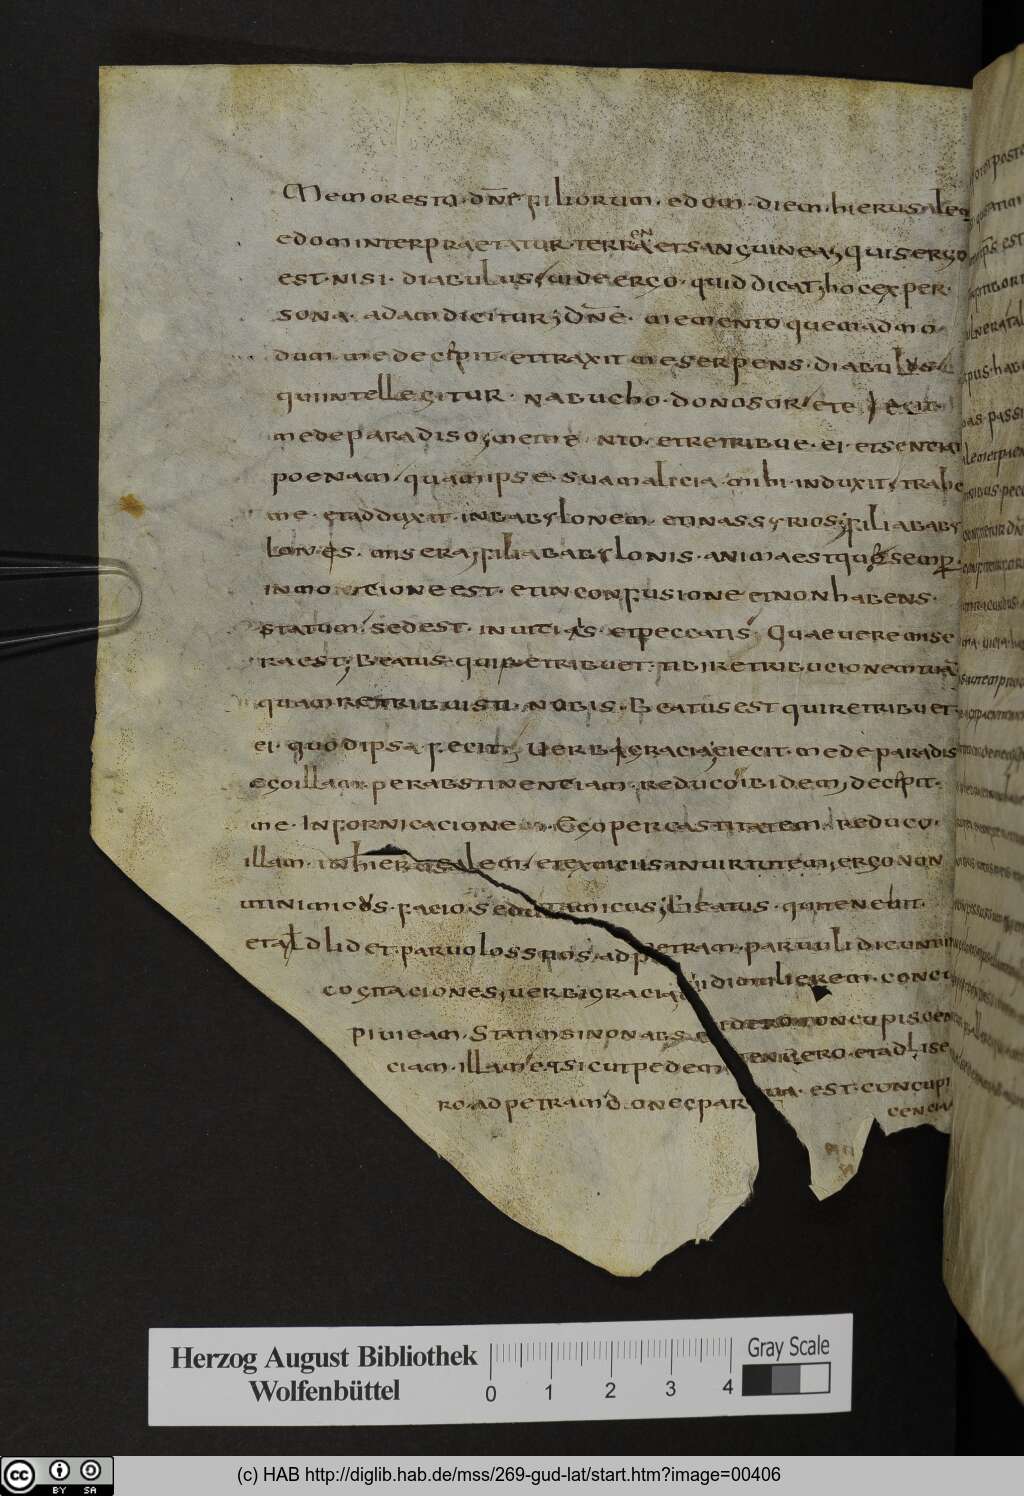 Memoresto dn̄e filiorum edom diem hierusalem
edom interpraetatur terren et sanguineas quis ergo
est nisi diabulus uide ergo quid dicat hoc ex per
sona adam dicitur dn̄e memento quemadmo
dum me decepit et traxit me serpens diabulus
qui intellegitur nabuchodonosor et eiecit
me de paradiso memento et retribue ei et senciat
poenam quam ipse sua malicia mihi induxit trahe
me et adduxit in babylonem et in assyrios filia baby
lonis misera filia babylonis anima est que semp
in mocione est et in confusione et non habens
statum sed est in uitiis et peccatis Quae uere mise
ra est Beatus qui retribuet tibi retribucionem tuā
quam retribuisti nobis Beatus est qui retribuet
ei quod ipsa fecit Uerbi gracia eiecit me de paradis
ego illam per abstinenciam reduco ibidem decepit
me In fornicacione Ego per castitatem reduco
illam in hierusalem et ex uiciis in uirtutem ergo non
inimicus facio sed amicus Beatus qui tenebit
et allidet paruolos suos ad petram paruuli dicuntur
cogitaciones uerbi gracia uidi mulierem concu
piui eam Statim si non abscidero concupiscen
ciam illam et si cut pedem tenuero et adlise
ro ad petram donec parua est concupi
cencia
Herzog August Bibliothek
Wolfenbüttel
0 1 2 3 4
Gray Scale
cc BY SA
(c) HAB http://diglib.hab.de/mss/269-gud-lat/start.htm?image=00406